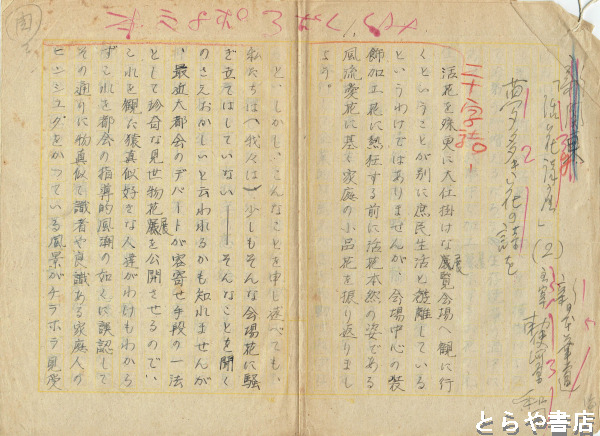 活花講座」(2)
夢多き花の話を
二十字詰。
活花を殊更に大仕掛けな展覧会場へ観に行
くということが別に庶民生活と遊離している
というわけではありませんが、会場中心の装
飾加工花に熱狂する前に活花本然の姿である
風流愛花に基く家庭の小品花を振り返りまし
ょう。
と、しかし、こんなことを申し述べても、
私たちは(我々は)少しもそんな会場花に騒
ぎ立てはしていない――そんなことを聞く
のさえおかしいと云われるかも知れませんが
、最近大都会のデパートが客寄せ手段の一法
として珍奇な見世物花展を公開させるので、
これを観た猿真似好きな人達がわけもわから
ずこれを都会の指導的風潮の如くに誤認して
その通りに物真似て識者や良識ある家庭人の
ヒンシュクをかっている風景がチラホラ見受
とらや書店